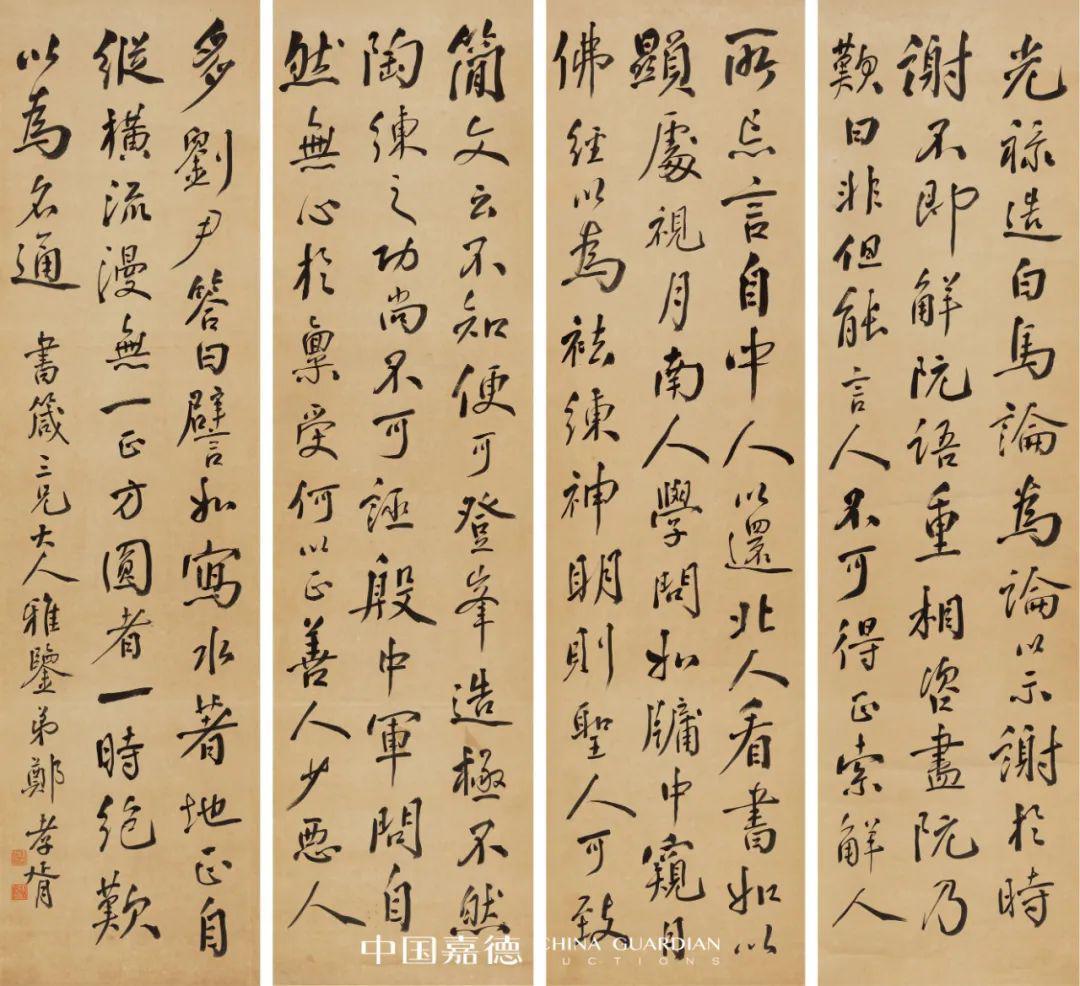 光祿造白馬論為論以示謝於時
謝不即解阮語重相咨盡阮乃
歎曰非但能言人不可得正索解人
所忘言自中人以還北人看書如以
顯處視月南人學問如牖中窺日
佛經以為祛練神明則聖人可致
簡文云不知便可登峯造極不然
陶練之功尚不可誣殷中軍問自
然無心於稟受何以正善人少惡人
多劉尹答曰譬如寫水著地正自
縱橫流漫無一正方圓者一時絕歎
以為名通
書箴三兄大人雅鑒弟鄭孝胥
中国嘉德
CHINA GUARDIAN
UCTIONS